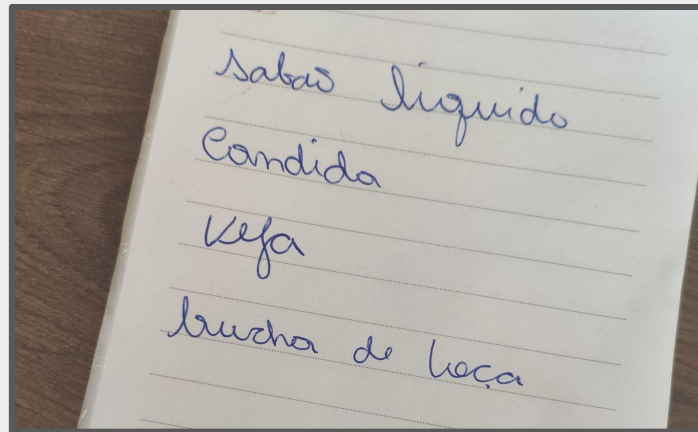 sabão líquido
Candida
Veja
bucha de louça